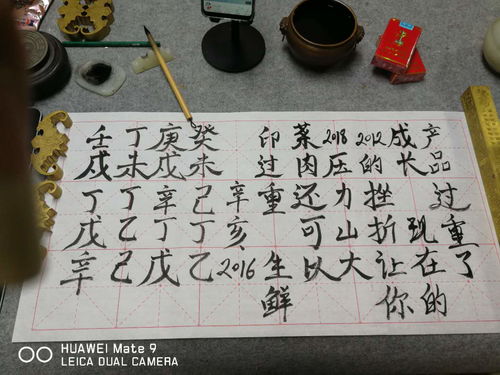 产品过重了
成长现在的
2012的挫折让你
2018压力山大
菜肉还可以
印过重生鲜
辛亥2016
癸未己丁乙
庚戌辛丁戊
丁未丁乙己
壬戌丁戊辛
HUAWEI Mate 9
LEICA DUAL CAMERA